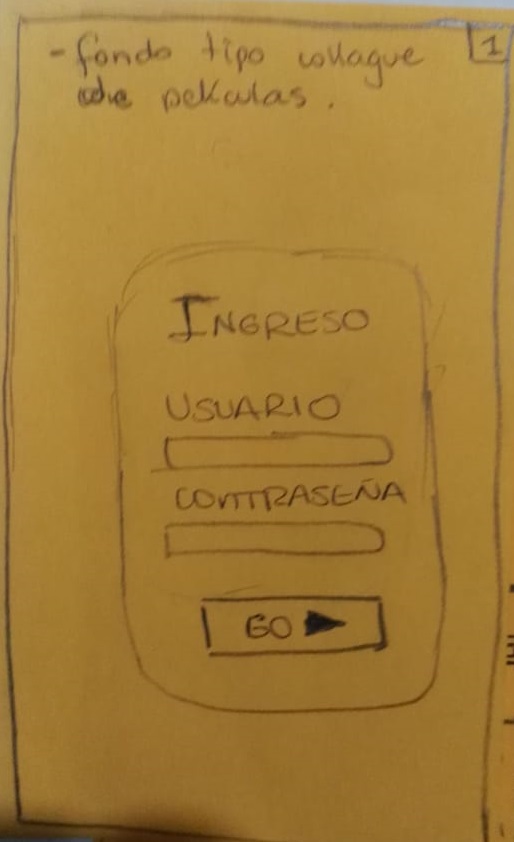 - fondo tipo collague
de pelculas.
1
INGRESO
USUARIO
CONTRASEÑA
GO